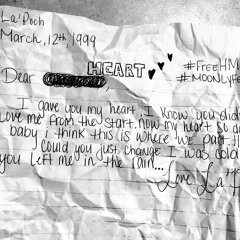 La'Pooh
March, 12th, 1999
HEART
#FreeHM
#MOONLYFE
Dear
I gave you my heart, I know you didn
Love me from the start, now my heart so da
baby i think this is where we part th
Could you just change I was cold
you left me in the rain...
Love La'P